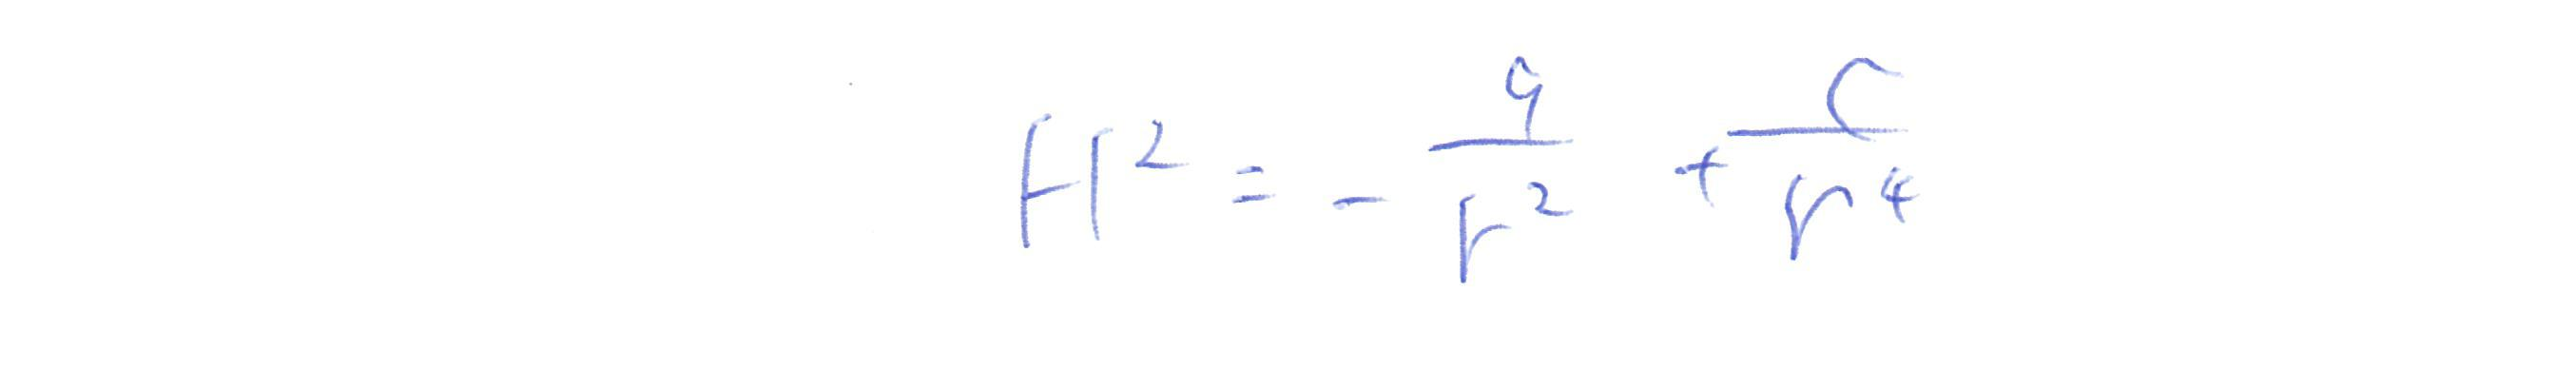 H² = - 9/r² + C/r⁴